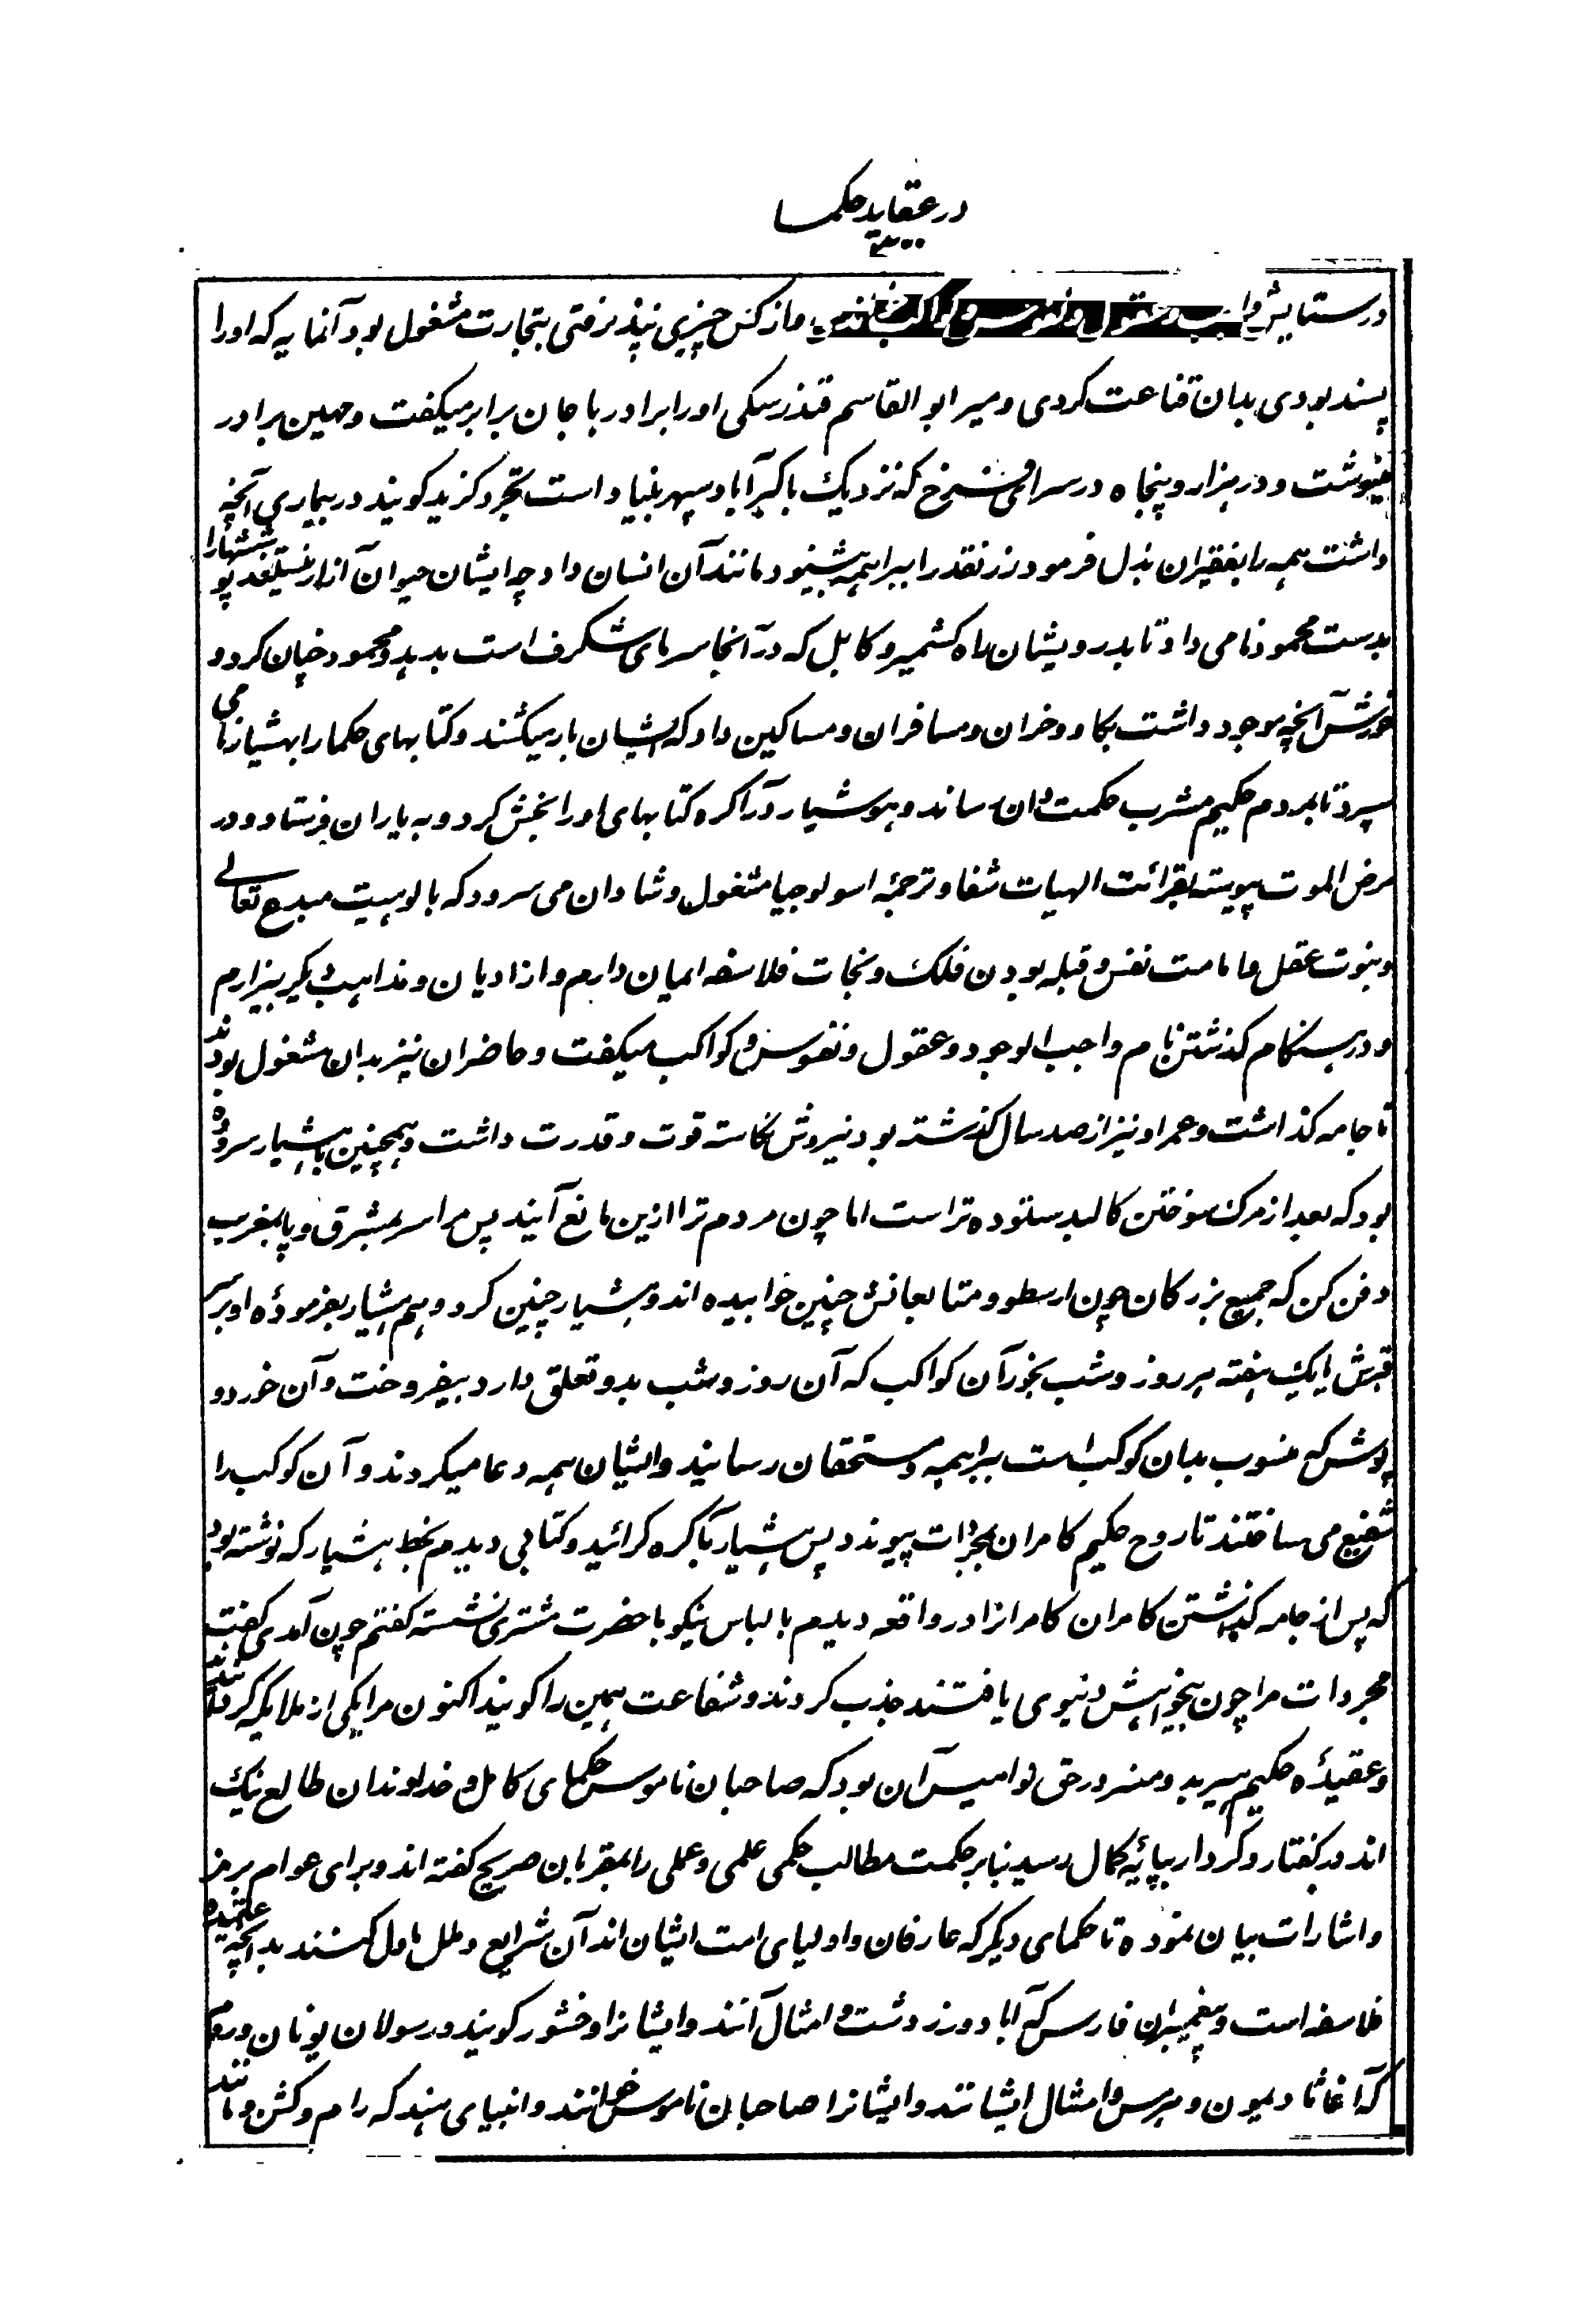 در عقاید حکما
در ستایش واجب و عقول و نفوس و کواکب خواندی و از کس چیزی نپذیرفتی بتجارت مشغول بود آنمایه که اورا
پسند بودی بدان قناعت کردی و میر ابو القاسم قندرسکی اورا برادر با جان برابر میکفت و مهین برادر
مینوشت و در هزار و پنجاه در سرای فرخ که نزدیک باکبرآباد سپهر بنیاد است تجرد کزید کویند در بیماری آنچه
داشت همه را بفقیران بذل فرمود زر نقد را ببراهمه بیشنو و مانند آن انسان داد چه ایشان حیوان آزار نیستند پوششها را
بدست محمود نامی داد تا بدرویشان راه کشمیر و کابل که در آنجا سرمای شکرف است بدهد و محمود چنان کرد و
خورش آنچه موجود داشت بکاو و خران و مسافران و مساکین داد که ایشان بار میکشند و کتابهای حکما را بهشیار نامی
سپرد تا بمردم حکیم مشرب حکمت دان رساند و هوشیار در آکره کتابهای او را بخش کرد و به یاران فرستاد و در
مرض الموت پیوسته بقرائت الهیات شفا و ترجمهٔ اسولوجیا مشغول و شادان می سرود که بالوهیت مبدع تعالی
و نبوت عقل و امامت نفس و قبله بودن فلک و نجات فلاسفه ایمان دارم و از ادیان و مذاهب دیگر بیزارم
و در هنکام کذشتن نام واجب الوجود و عقول و نفوس و کواکب میکفت و حاضران نیز بدان مشغول بودند
تا جامه کذاشت و عمر او نیز از صد سال کذشته بود نیروش نکاسته قوت و قدرت داشت و همچنین با هشیار سروده
بود که بعد از مرک سوختن کالبد ستوده تر است اما چون مردم ترا ازین مانع آیند پس مرا سر بمشرق و پا بمغرب
دفن کن که جمیع بزرکان چون ارسطو و متابعانش چنین خوابیده اند و هشیار چنین کرد و هم هشیار بفرمودهٔ او بر سر
قبرش تا یک هفته هر روز و شب بخور آن کواکب که آن روز و شب بدو تعلق دارد بیفروخت و آن خورد و
پوشش که منسوب بدان کوکب است ببراهمه و مستحقان رسانید و ایشان همه دعا میکردند و آن کوکب را
شفیع می ساختند تا روح حکیم کامران بمجردات پیوندد پس هشیار بآکره کرائید و کتابی دیدم بخط هشیار که نوشته بود
که پس از جامه کذاشتن کامران کامرانرا در واقعه دیدم با لباس نیکو با حضرت مشتری نشسته کفتم چون آمدی کفت
مجردات مرا چون بیخواهش دنیوی یافتند جذب کردند و شفاعت همین را کویند اکنون مرا یکی از ملایکه کردانیدند
و عقیدهٔ حکیم هیربد و منیر در حق نوامیس آن بود که صاحبان ناموس حکمای کامل و خداوندان طالع نیک
اند در کفتار و کردار بپائیه کمال رسید بنابر حکمت مطالب حکمی علمی و عملی را بمقربان صریح کفته اند و برای عوام برمز
و اشارات بیان نموده تا حکمای دیکر که عارفان و اولیای امت ایشان اند آن شرایع و ملل تاول کنند بدانچه عقیده
فلاسفه است و پیغمبران فارس که آباد و زردشت و امثال آنند و ایشانرا وخشور کویند و رسولان یونان و روم
که آغاثا دیمون و هرمس و امثال ایشانند و ایشانرا صاحبان ناموس خوانند و انبیای هند که رام و کشن و مانند